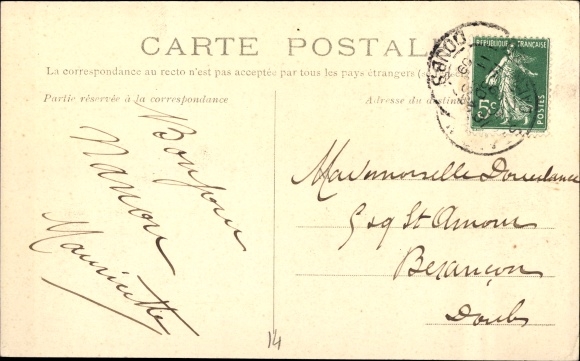 CARTE POSTALE
La correspondance au recto n'est pas acceptée par tous les pays étrangers
Partie réservée à la correspondance
Adresse du destinataire
REPUBLIQUE FRANÇAISE
5c
POSTES
DOUBS
Bonjour
Manon
Mauricette
Mademoiselle
Sq St Amour
Besançon
Doubs
14